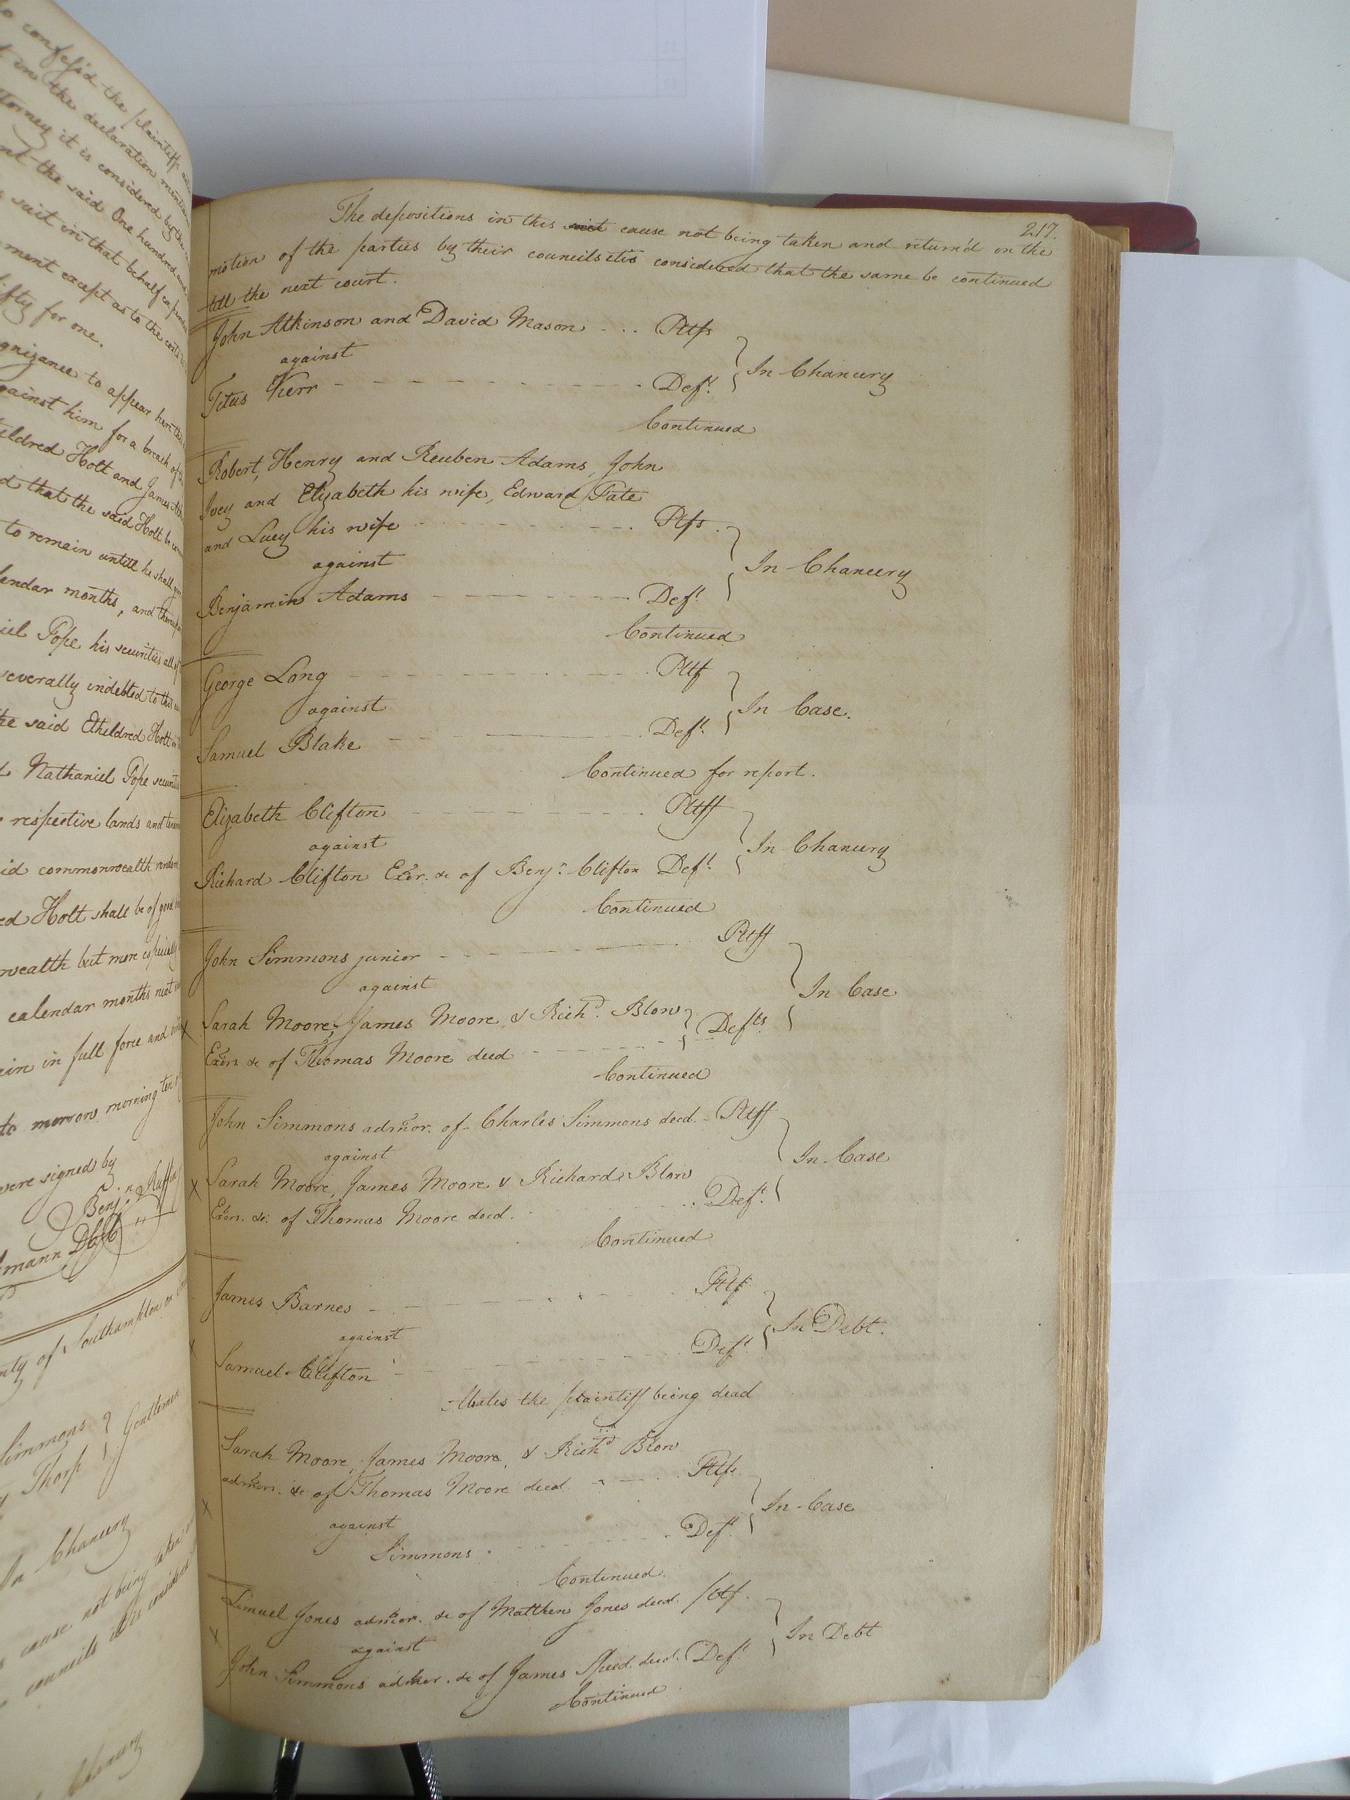 o confess'd the plaintiffs
t in the declaration mention
ttorney it is considered by the
nt the said One hundred and
s suit in that behalf expended
ment except as to the costs
fifty for one.
ognizance to appear here this
against him for a breach of the
theldred Holt and James
d that the said Holt be
to remain untill he shall
lendar months, and
iel Pope his securities all of
severally indebted to the
the said Etheldred Holt
d Nathaniel Pope securities
r respective lands and
id commonwealth
ed Holt shall be of good
nwealth but more especially
calendar months next
ain in full force and
to morrow morning ten
were signed by
Benj.n Ruffin
mann DCK
nty of Southampton
Simmons
Thorp } Gentlemen
In Chancery
cause not being taken
councils it is considered
Chancery
217.
The depositions in this suit cause not being taken and return'd on the
motion of the parties by their councils itis considered that the same be continued
till the next court.
John Atkinson and David Mason - .. Pltfs
against } In Chancery
Titus Kerr - - - - - - Deft.
Continued
Robert, Henry and Reuben Adams, John
Ivey and Elizabeth his wife, Edward Pate
and Lucy his wife - - - - - Pltfs.
against } In Chancery
Benjamin Adams - - - - - Deft.
Continued
George Long - - - - - - Pltf
against } In Case.
Samuel Blake - - - - - Deft.
Continued for report.
Elizabeth Clifton - - - - - Pltff
against } In Chancery
Richard Clifton Exer. &c of Benj.n Clifton Deft.
Continued
John Simmons junior - - - - - Pltff
against } In Case
X Sarah Moore, James Moore, & Richd. Blow } Defts.
Exers &c of Thomas Moore decd - - - -
Continued
John Simmons admor. of Charles Simmons decd. - Pltff
against } In Case
X Sarah Moore, James Moore & Richard Blow
Exers. &c. of Thomas Moore decd. . . Deft.
Continued
James Barnes - - - - Pltf
X against } In Debt.
Samuel Clifton - - - - Deft
Abates the plaintiff being dead
Sarah Moore, James Moore, & Richd Blow
admors. &c of Thomas Moore decd. - - - Pltfs
X against } In Case
Simmons . - - - . Deft.
Continued.
Limuel Jones admor. &c of Matthew Jones decd. Pltf.
X against } In Debt
John Simmons admor. &c of James Speed decd. Deft
Continued